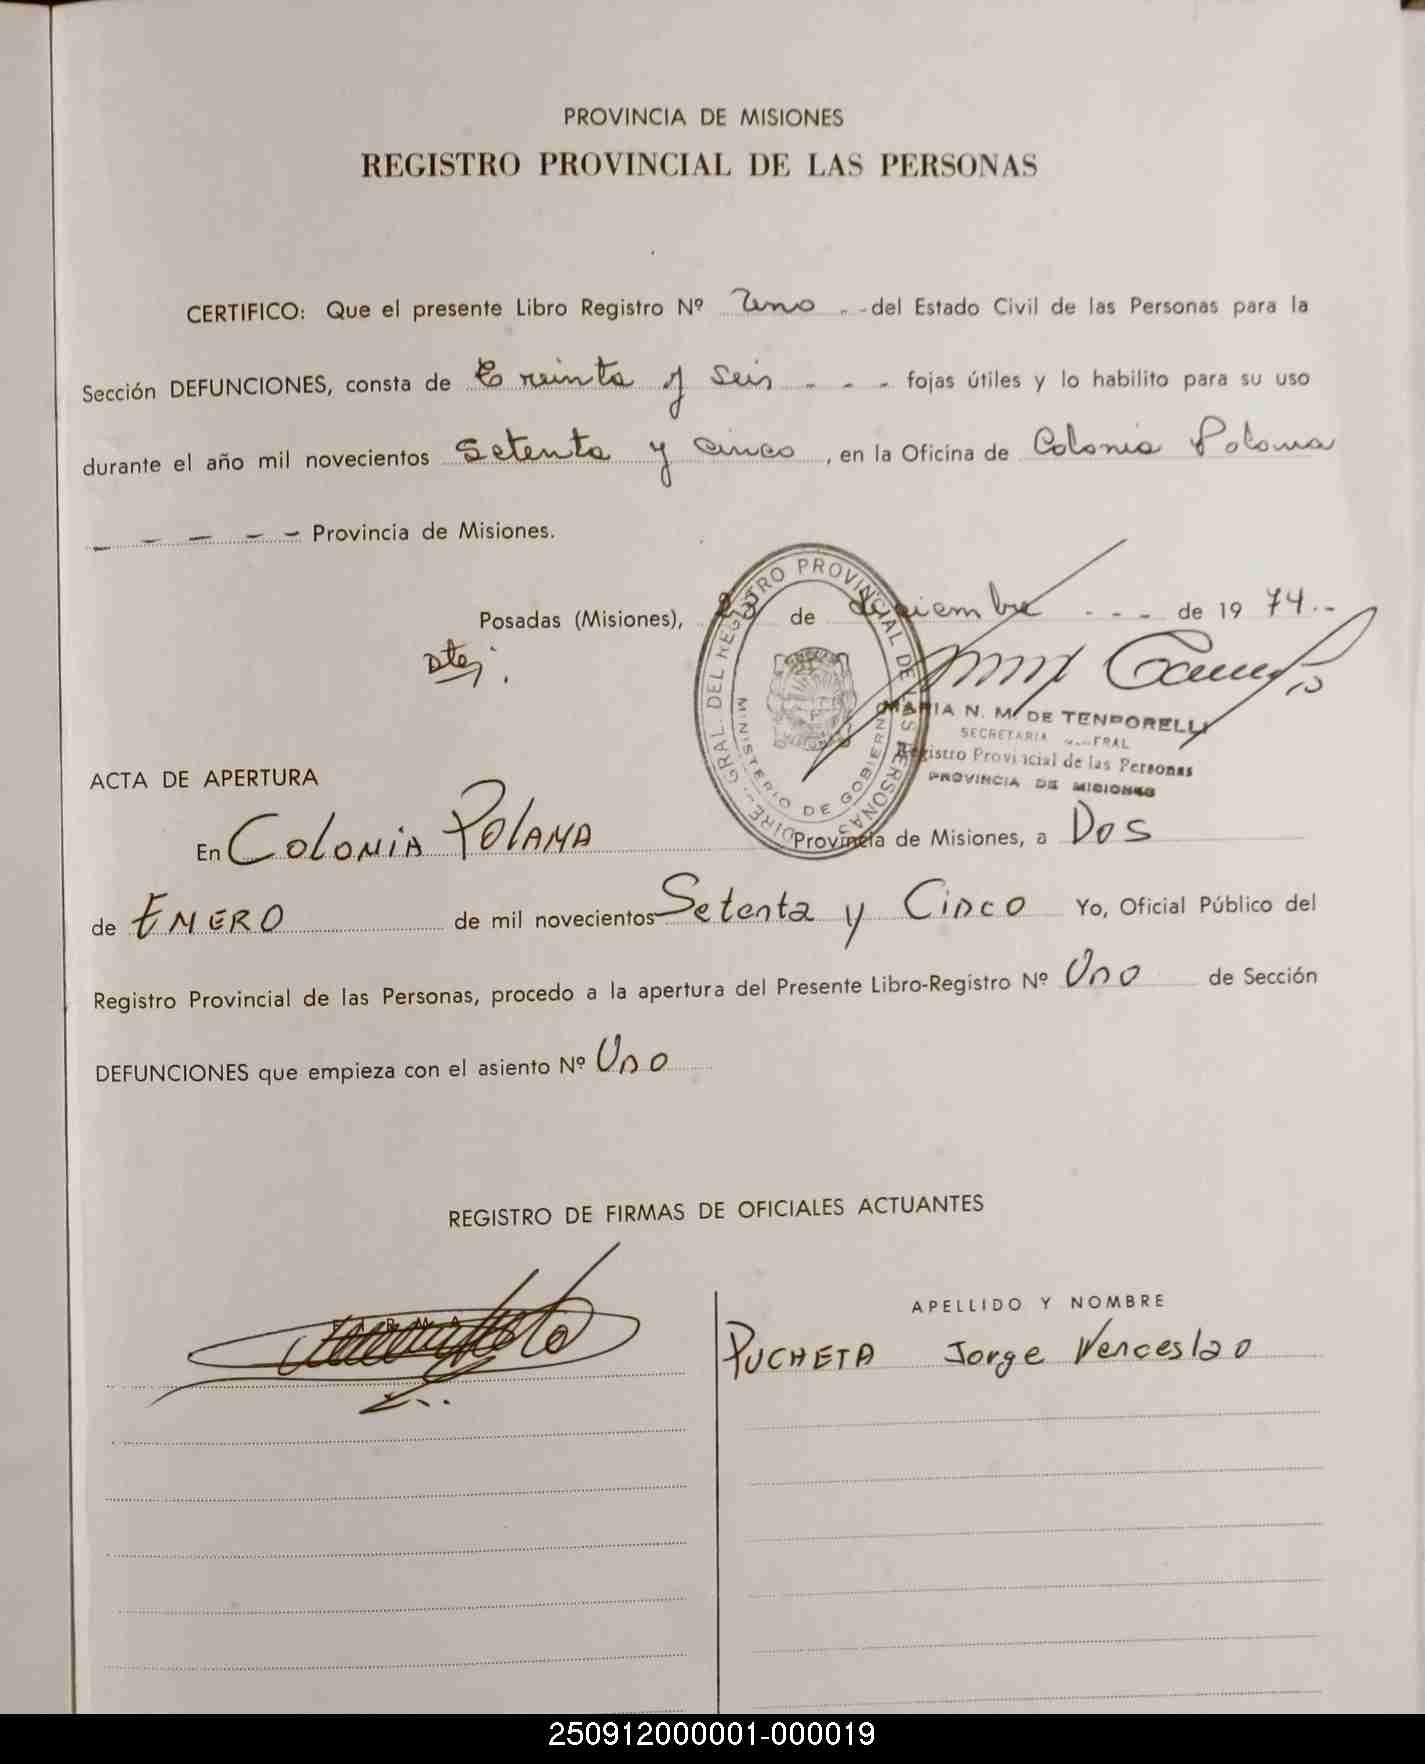 PROVINCIA DE MISIONES
REGISTRO PROVINCIAL DE LAS PERSONAS
CERTIFICO: Que el presente Libro Registro Nº Uno - - del Estado Civil de las Personas para la
Sección DEFUNCIONES, consta de treinta y seis - - - fojas útiles y lo habilito para su uso
durante el año mil novecientos setenta y cinco, en la Oficina de Colonia Polana
- - - - - Provincia de Misiones.
Posadas (Misiones), 23 de diciembre - - - de 1974..
DIREC. GRAL. DEL REGISTRO PROVINCIAL DE LAS PERSONAS
MINISTERIO DE GOBIERNO
MARIA N. M. DE TENPORELLI
SECRETARIA GENERAL
Registro Provincial de las Personas
PROVINCIA DE MISIONES
ACTA DE APERTURA
En COLONIA POLANA Provincia de Misiones, a DOS
de ENERO de mil novecientos Setenta y Cinco Yo, Oficial Público del
Registro Provincial de las Personas, procedo a la apertura del Presente Libro-Registro Nº Uno de Sección
DEFUNCIONES que empieza con el asiento Nº Uno
REGISTRO DE FIRMAS DE OFICIALES ACTUANTES
FIRMA
APELLIDO Y NOMBRE
PUCHETA Jorge Venceslao
250912000001-000019